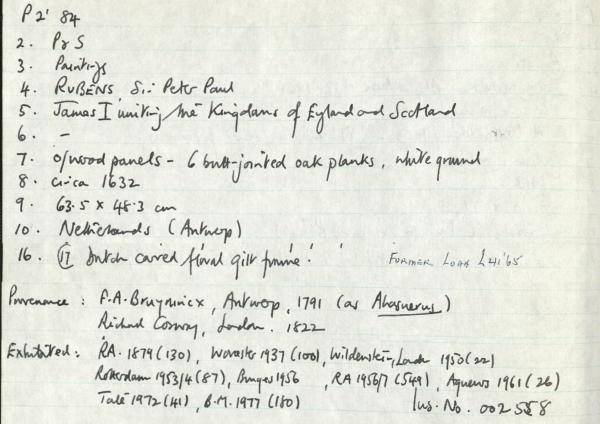 P2' 84
2. P & S
3. Paintings
4. RUBENS, Sir Peter Paul
5. James I uniting the Kingdoms of England and Scotland
6. -
7. o/wood panels - 6 butt-jointed oak planks, white ground
8. circa 1632
9. 63.5 x 48.3 cm
10. Netherlands (Antwerp)
16. 17 dutch carved floral gilt frame! FORMER LOAN L41'65
Provenance: F.A. Bruynincx, Antwerp, 1791 (as Ahasuerus)
Richard Cosway, London. 1822
Exhibited: RA. 1879 (130), Worcester 1937 (100), Wildenstein, London 1950 (22)
Rotterdam 1953/4 (87), Bruges 1956, RA 1956/7 (549), Agnews 1961 (26)
Tate 1972 (41), B.M. 1977 (180) Ins. No. 002558